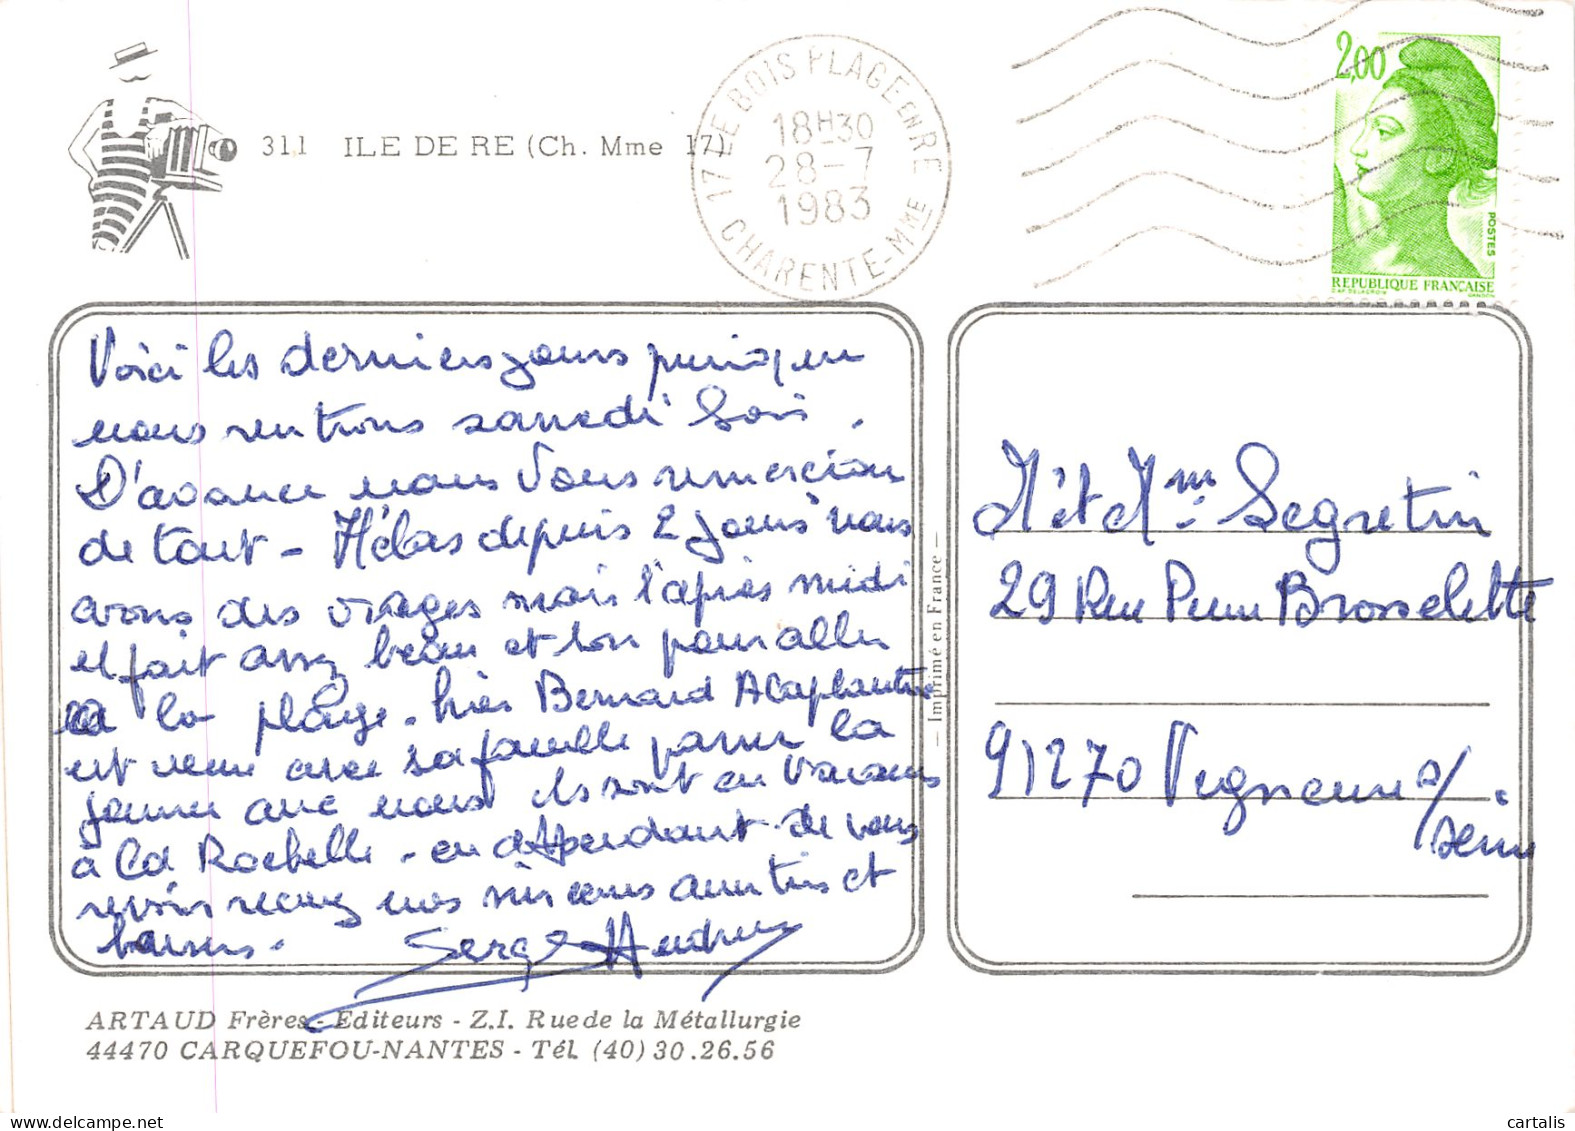 311 ILE DE RE (Ch. Mme 17)
17 LE BOIS PLAGE EN RE
18H30
28-7
1983
CHARENTE-Mme
2,00
POSTES
REPUBLIQUE FRANÇAISE
D'AP. DELACROIX GANDON
Voici les derniers jours puisque
nous rentrons samedi Soir.
D'avance nous Vous remercions
de tout - Hélas depuis 2 jours nous
avons des orages mais l'après midi
il fait assez beau et bon pour aller
à la plage. hier Bernard
est venu avec sa famille passer la
journée avec nous ils sont en vacances
à La Rochelle - en attendant de vous
revoir recevez nos sincères amitiés et
baisers.
Serge
- Imprimé en France -
M et Mme Segretin
29 Rue Pierre Brossolette
91270 Vigneux s/
seine
ARTAUD Frères - Editeurs - Z.I. Rue de la Métallurgie
44470 CARQUEFOU-NANTES - Tél. (40) 30.26.56
cartalis
www.delcampe.net